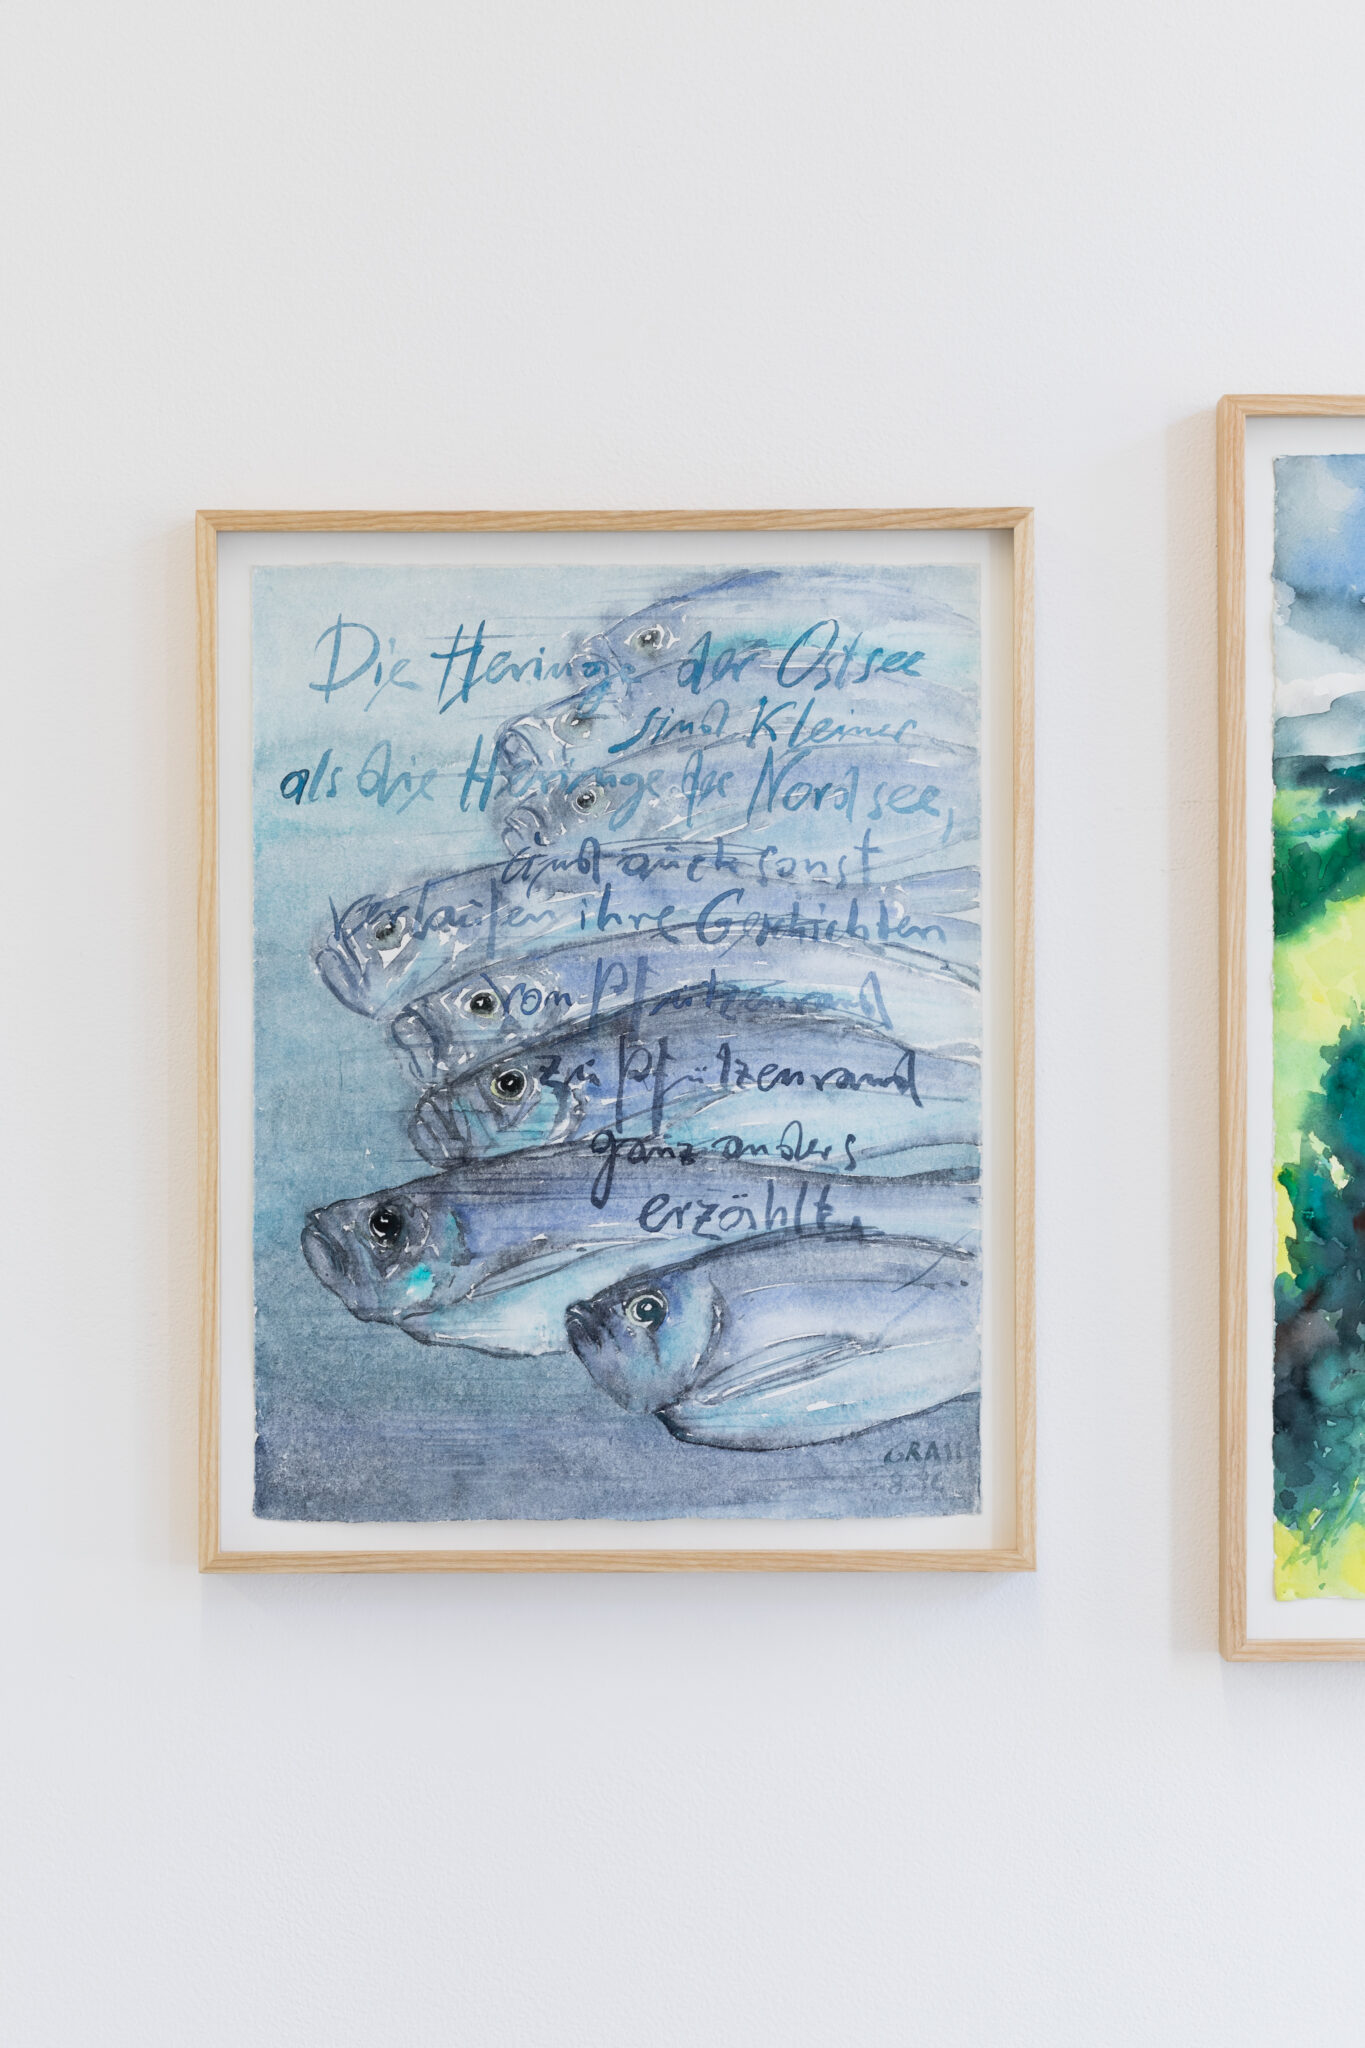 Die Heringe der Ostsee
sind kleiner
als die Heringe der Nordsee,
und auch sonst
verlaufen ihre Geschichten
von Pfützenrand
zu Pfützenrand
ganz anders
erzählt.
GRASS